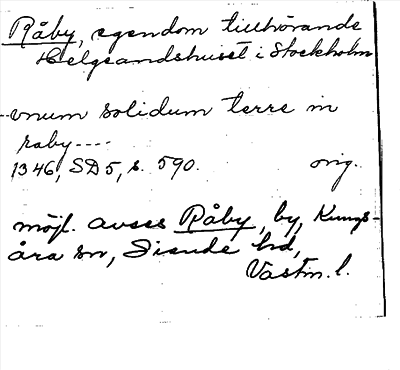 Råby, egendom tillhörande
Helgeandshuset i Stockholm
--vnum solidum terre in
raby----
1346, SD5, s. 590. orig.
möjl. avses Råby, by, Kungs-
åra sn, Siende hd,
Västm. l.